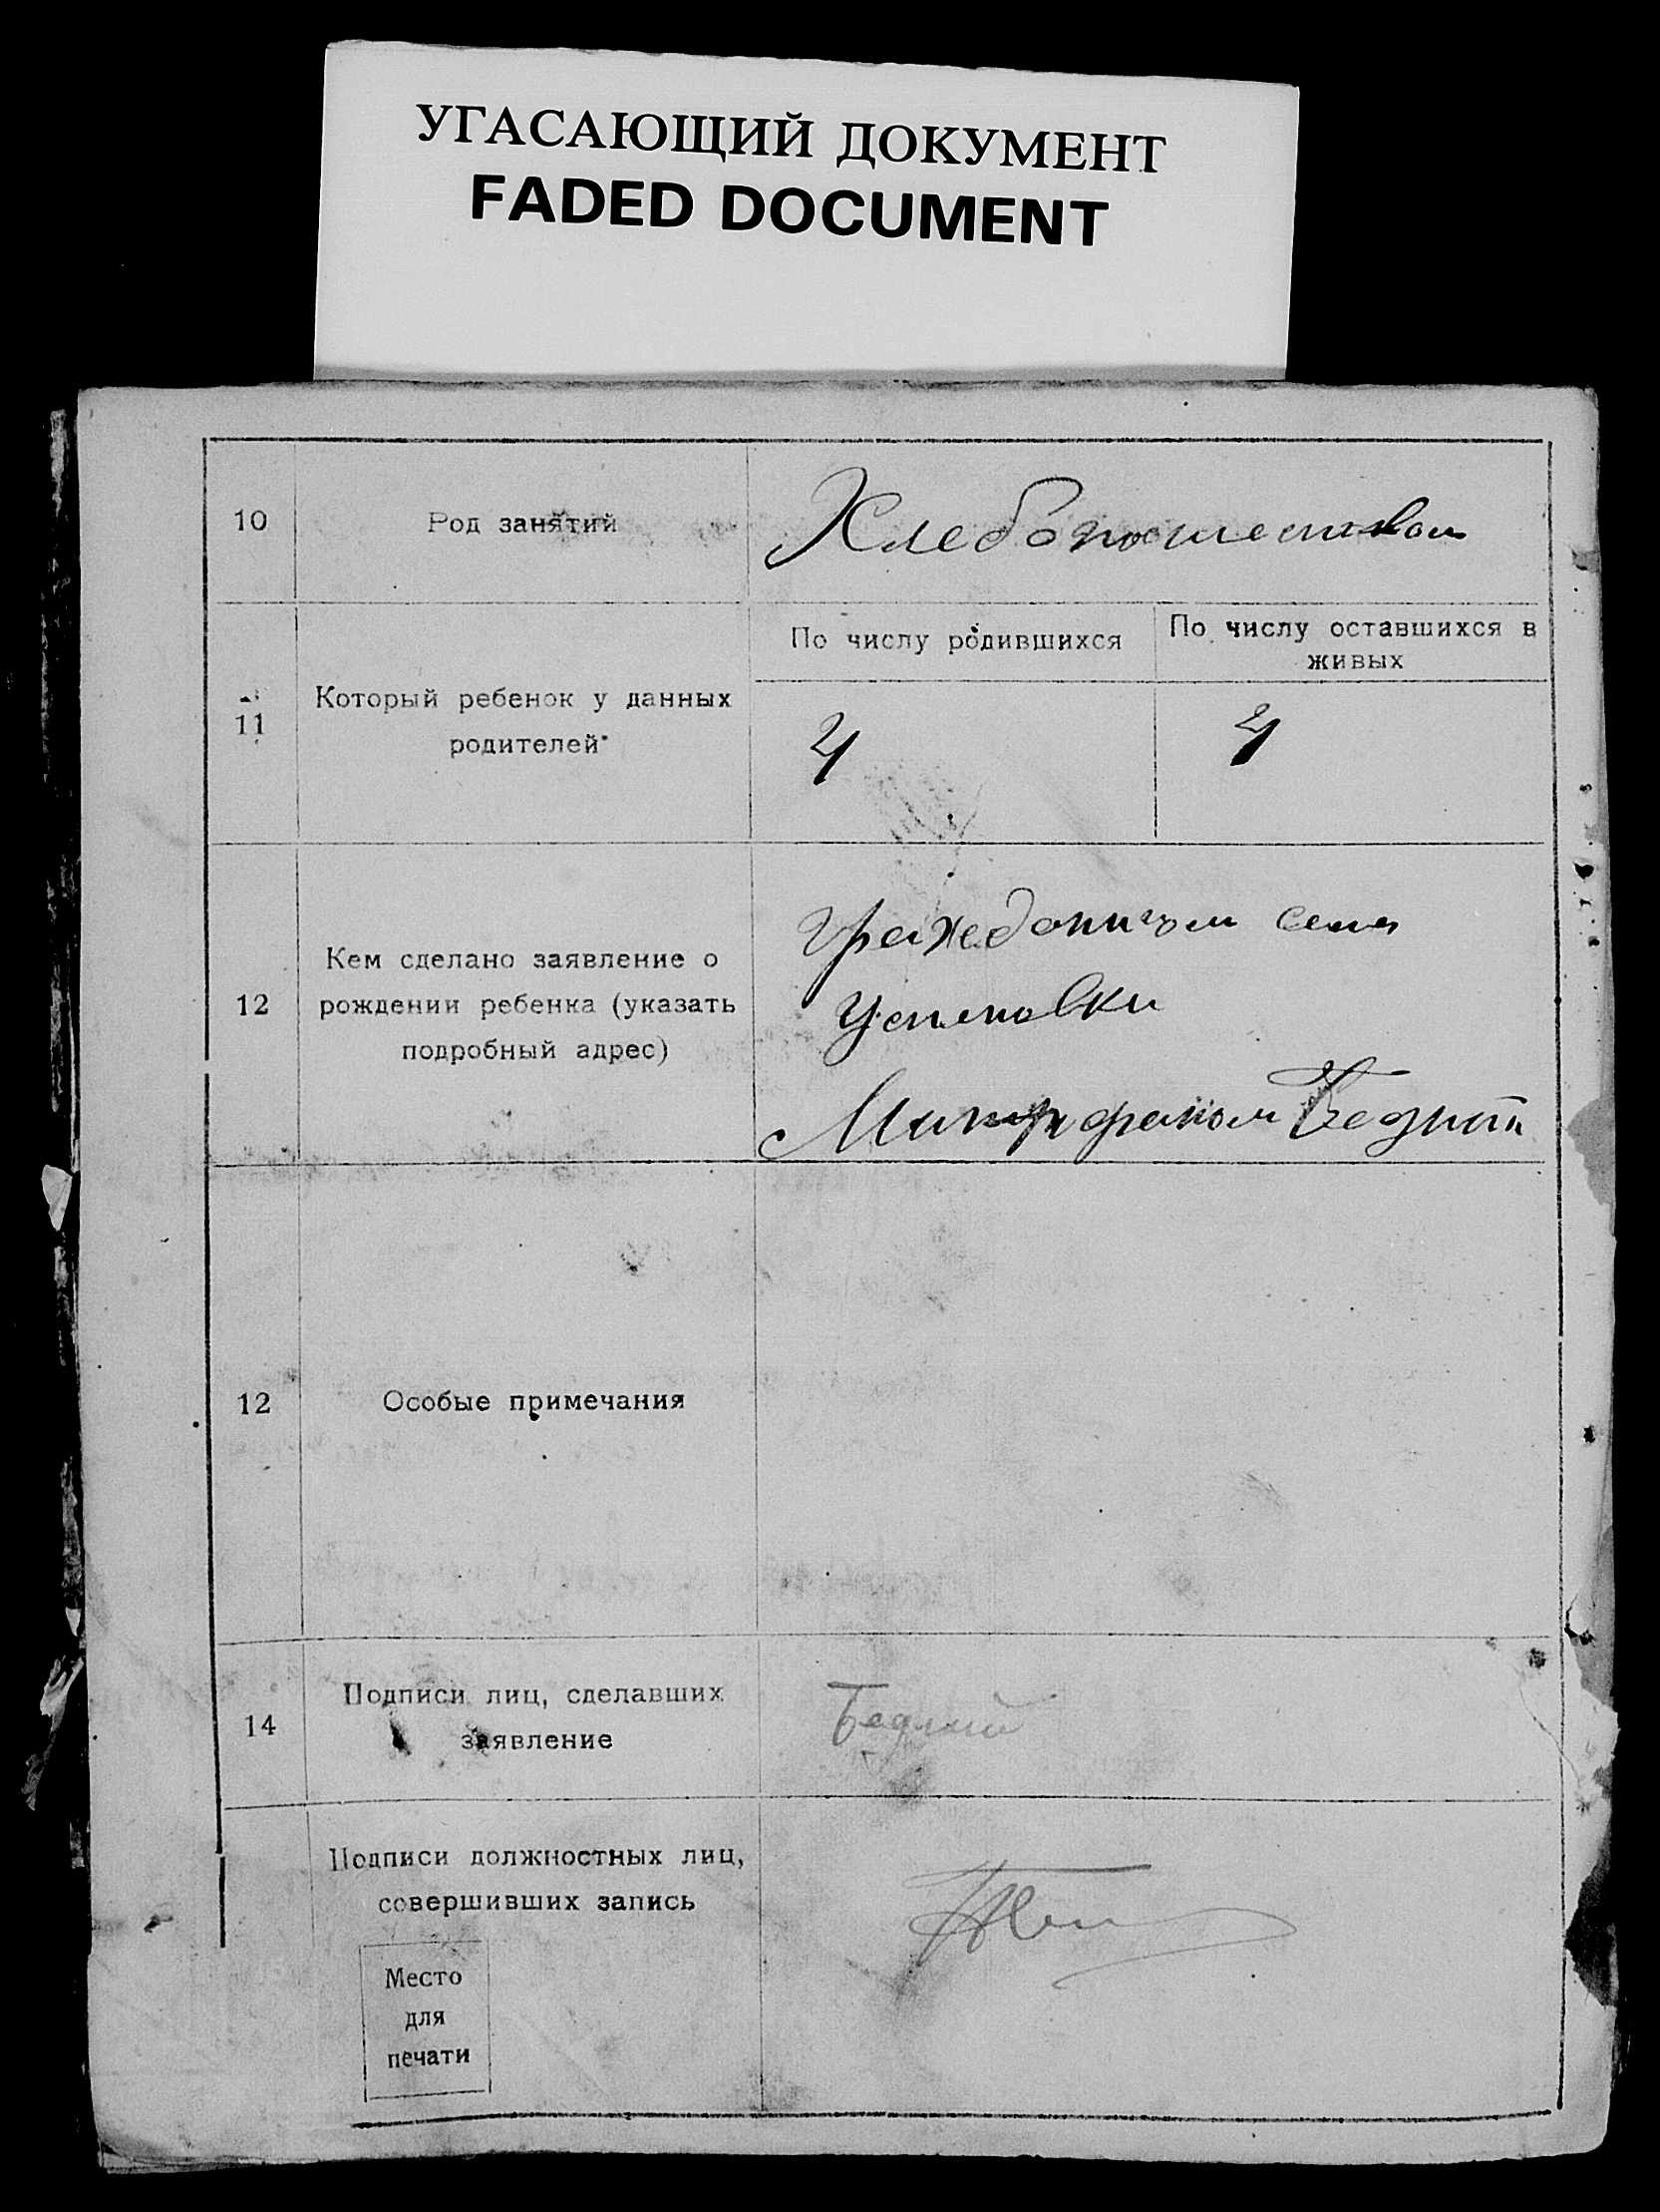 УГАСАЮЩИЙ ДОКУМЕНТ
FADED DOCUMENT
10
Род занятий
Хлебопашеством
11
Который ребенок у данных
родителей
По числу родившихся
По числу оставшихся в
живых
4
4
12
Кем сделано заявление о
рождении ребенка (указать
подробный адрес)
села
12
Особые примечания
14
Подписи лиц, сделавших
заявление
Бедный
Подписи должностных лиц,
совершивших запись
Место
для
печати